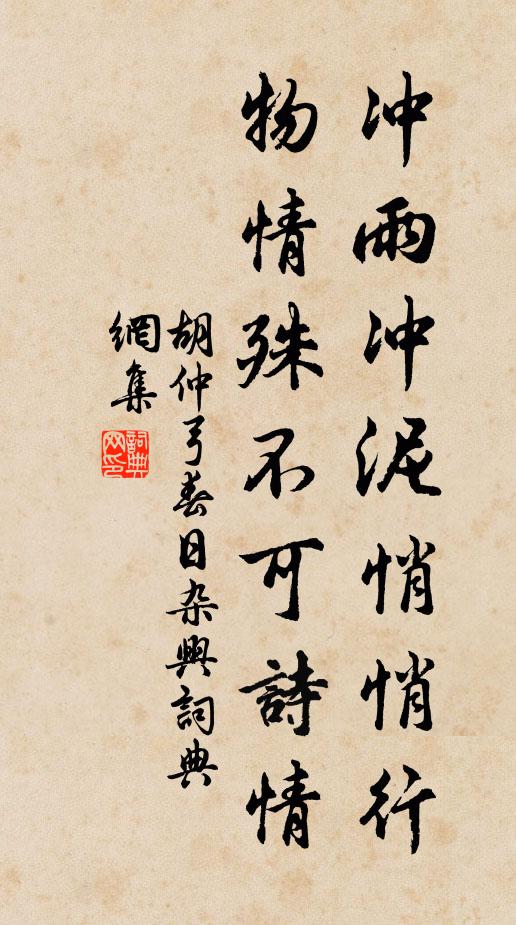 冲雨冲泥悄悄行
物情殊不可詩情
胡仲弓春日杂興詞典
網集
詞典网印